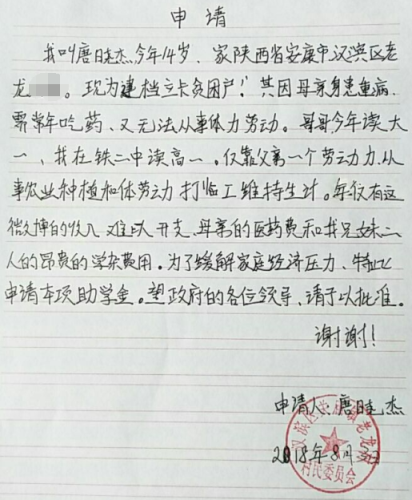 申请
我叫唐晓杰今年14岁、家陕西省安康市汉滨区老
龙。现为建档立卡贫困户！其因母亲身患重病、
需常年吃药、又无法从事体力劳动。哥哥今年读大
一、我在铁二中读高一。仅靠父亲一个劳动力、从
事农业种植和体劳动打临工维持生计。每仅有这
微博的收入难以开支、母亲的医药费和我兄妹二
人的昂贵的学杂费用。为了缓解家庭经济压力、特此
申请本项助学金。望政府的各位领导、请予以批准。
谢谢！
申请人：唐晓杰
2018年8月
村民委员会